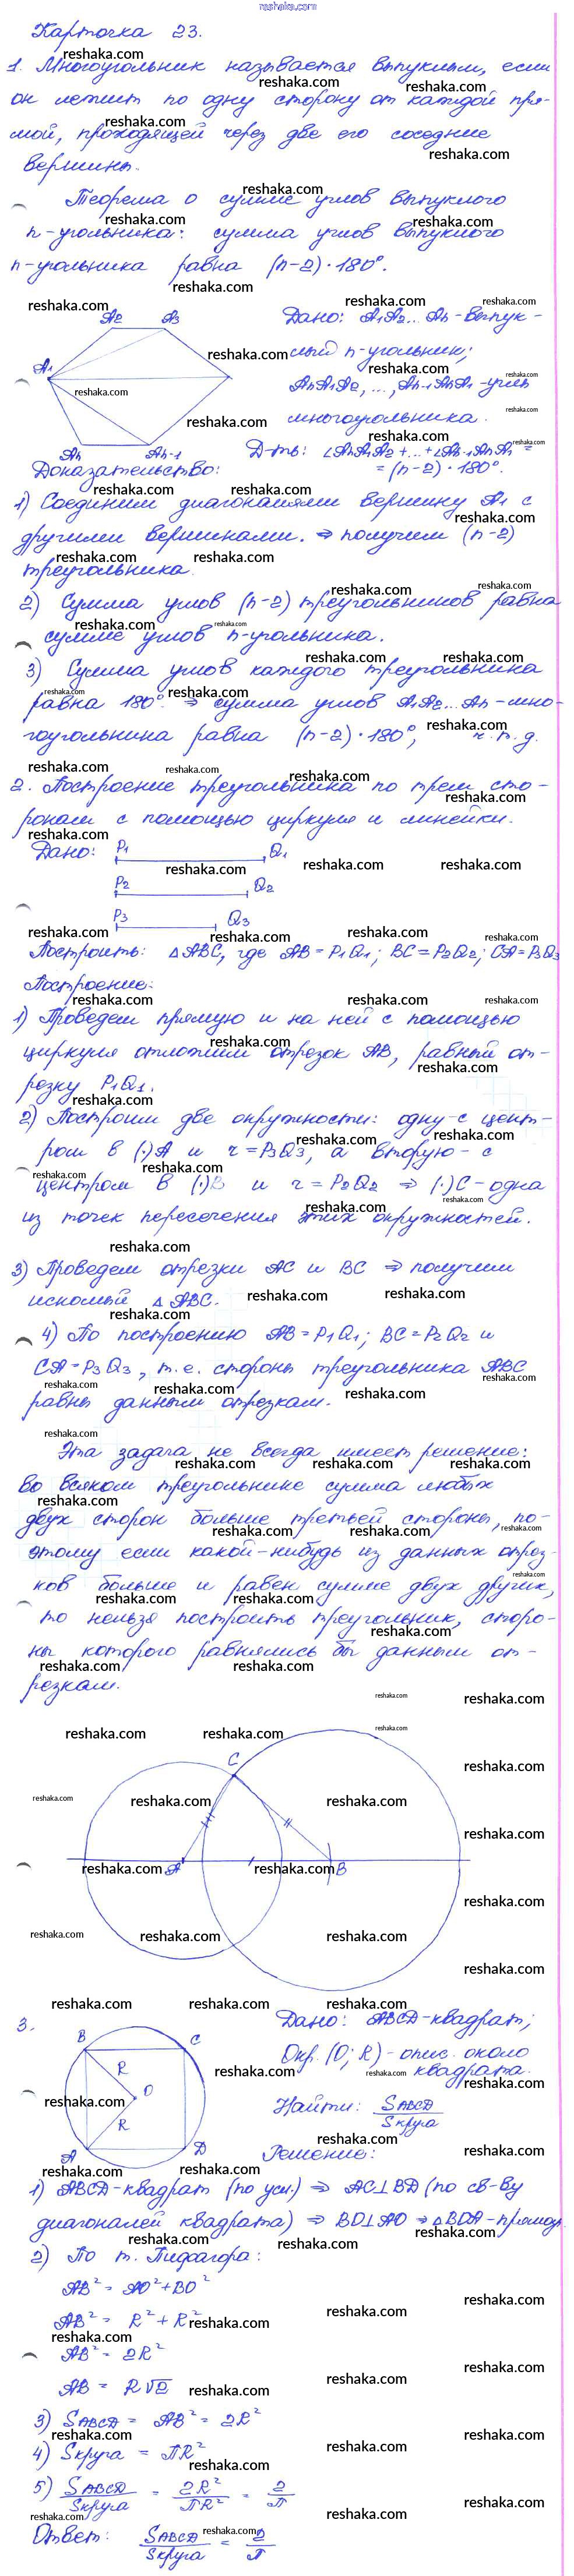 reshaka.com
Карточка 23.
1. Многоугольник называется выпуклым, если
он лежит по одну сторону от каждой пря-
мой, проходящей через две его соседние
вершины.
Теорема о сумме углов выпуклого
n-угольника: сумма углов выпуклого
n-угольника равна (n-2)·180°.
Дано: A1A2... An - выпук-
лый n-угольник;
AnA1A2, ..., An-1AnA1 - углы
многоугольника.
A1 A2 A3 An An-1
Д-ть: ∠AnA1A2 + ... + ∠An-1AnA1 =
= (n-2)·180°.
Доказательство:
1) Соединим диагоналями вершину A1 с
другими вершинами. ⇒ получим (n-2)
треугольника.
2) Сумма углов (n-2) треугольников равна
сумме углов n-угольника.
3) Сумма углов каждого треугольника
равна 180° ⇒ сумма углов A1A2...An - мно-
гоугольника равна (n-2)·180°, ч.т.д.
2. Построение треугольника по трем сто-
ронам с помощью циркуля и линейки.
Дано: P1 Q1
P2 Q2
P3 Q3
Построить: △ABC, где AB = P1Q1; BC = P2Q2; CA = P3Q3
Построение:
1) Проведем прямую и на ней с помощью
циркуля отложим отрезок AB, равный от-
резку P1Q1.
2) Построим две окружности: одну - с цент-
ром в (·)A и r = P3Q3, а вторую - с
центром в (·)B и r = P2Q2 ⇒ (·)C - одна
из точек пересечения этих окружностей.
3) Проведем отрезки AC и BC ⇒ получим
искомый △ABC.
4) По построению AB = P1Q1; BC = P2Q2 и
CA = P3Q3, т.е. стороны треугольника ABC
равны данным отрезкам.
Эта задача не всегда имеет решение:
во всяком треугольнике сумма любых
двух сторон больше третьей стороны, по-
этому если какой-нибудь из данных отрез-
ков больше и равен сумме двух других,
то нельзя построить треугольник, сторо-
ны которого равнялись бы данным от-
резкам.
C
A B
3.
B C
R O
R
A D
Дано: ABCD - квадрат;
Окр. (O; R) - опис. около
квадрата.
Найти: SABCD / Sкруга
Решение:
1) ABCD - квадрат (по усл.) ⇒ AC⊥BD (по св-ву
диагоналей квадрата) ⇒ BD⊥AO ⇒ △BOA - прямоуг.
2) По т. Пифагора:
AB² = AO² + BO²
AB² = R² + R²
AB² = 2R²
AB = R√2
3) SABCD = AB² = 2R²
4) Sкруга = πR²
5) SABCD / Sкруга = 2R² / πR² = 2 / π
Ответ: SABCD / Sкруга = 2 / π